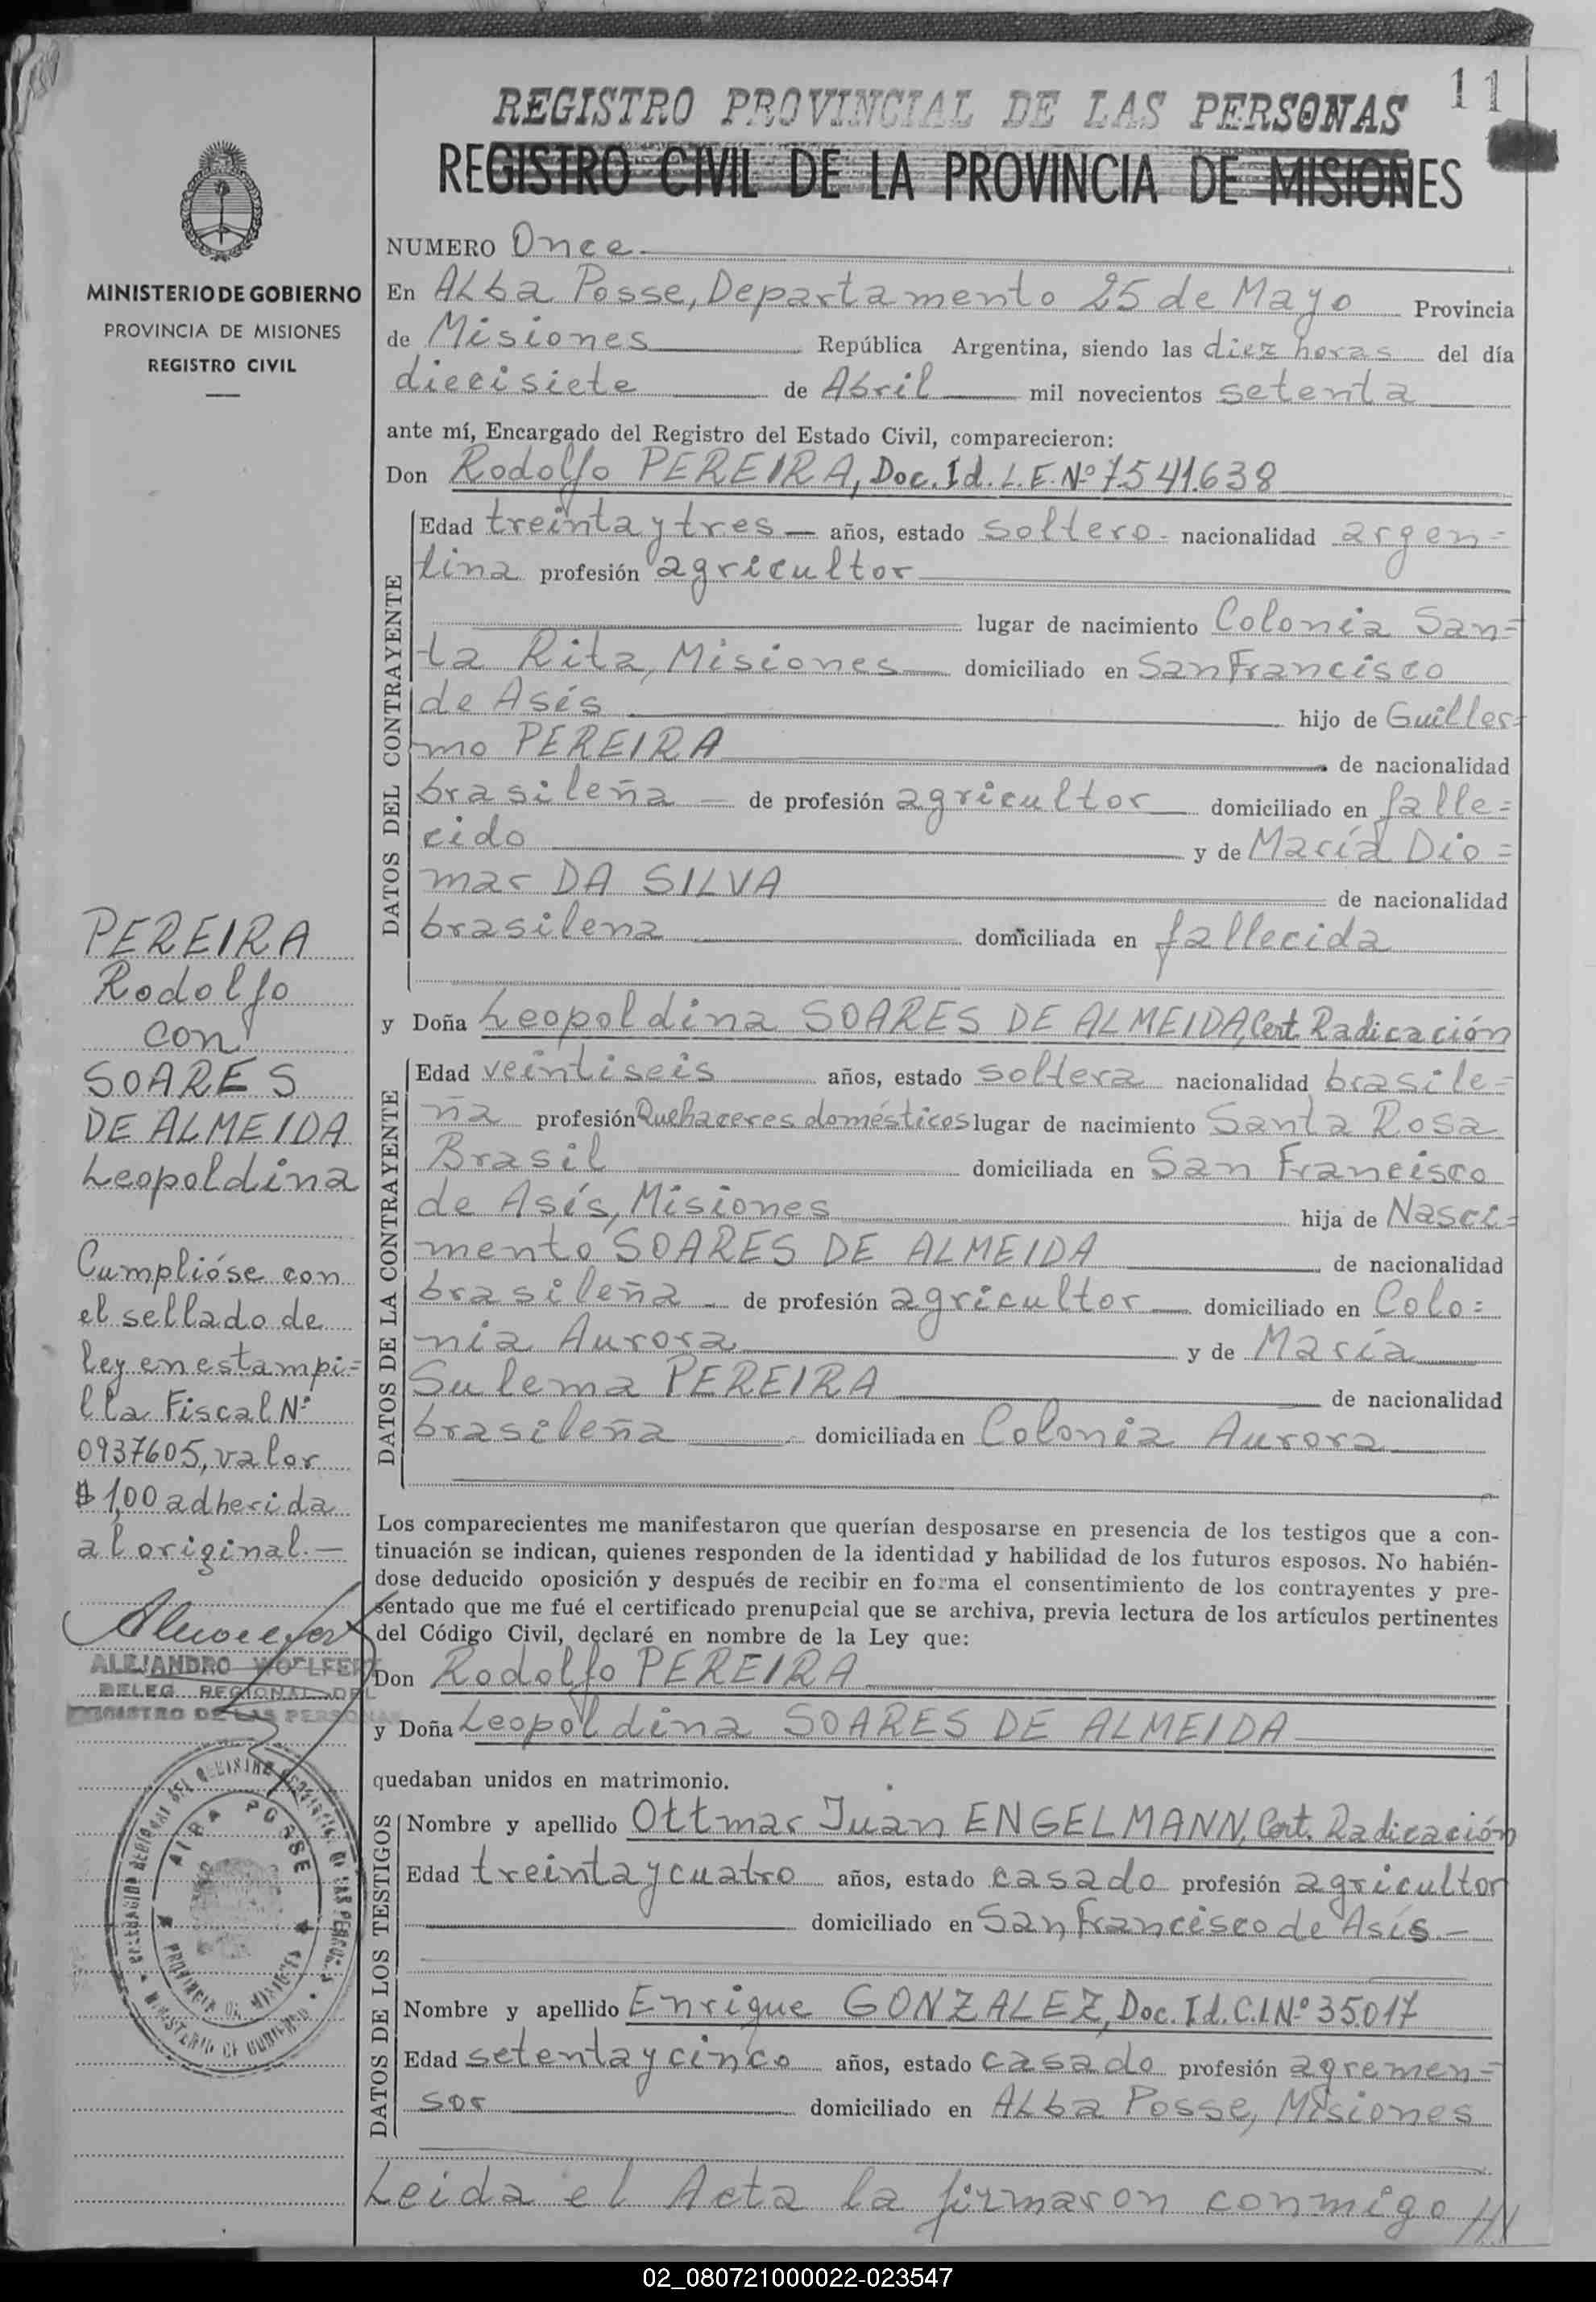 11
REGISTRO PROVINCIAL DE LAS PERSONAS
REGISTRO CIVIL DE LA PROVINCIA DE MISIONES
MINISTERIO DE GOBIERNO
PROVINCIA DE MISIONES
REGISTRO CIVIL
NUMERO Once
En Alba Posse, Departamento 25 de Mayo Provincia
de Misiones República Argentina, siendo las diez horas del día
diecisiete de Abril mil novecientos setenta
ante mí, Encargado del Registro del Estado Civil, comparecieron:
Don Rodolfo PEREIRA, Doc. Id. L.E. Nº 7.541.638
DATOS DEL CONTRAYENTE
Edad treinta y tres años, estado soltero nacionalidad argen=
tina profesión agricultor
lugar de nacimiento Colonia San=
ta Rita, Misiones domiciliado en San Francisco
de Asís hijo de Guiller=
mo PEREIRA de nacionalidad
brasileña de profesión agricultor domiciliado en falle=
cido y de María Dio=
mar DA SILVA de nacionalidad
brasilena domiciliada en fallecida
y Doña Leopoldina SOARES DE ALMEIDA, Cert. Radicación
DATOS DE LA CONTRAYENTE
Edad veintiseis años, estado soltera nacionalidad brasile=
ña profesión Quehaceres domésticos lugar de nacimiento Santa Rosa
Brasil domiciliada en San Francisco
de Asís, Misiones hija de Nasci=
mento SOARES DE ALMEIDA de nacionalidad
brasileña de profesión agricultor domiciliado en Colo=
nia Aurora y de María
Sulema PEREIRA de nacionalidad
brasileña domiciliada en Colonia Aurora
Los comparecientes me manifestaron que querían desposarse en presencia de los testigos que a con-
tinuación se indican, quienes responden de la identidad y habilidad de los futuros esposos. No habién-
dose deducido oposición y después de recibir en forma el consentimiento de los contrayentes y pre-
sentado que me fué el certificado prenupcial que se archiva, previa lectura de los artículos pertinentes
del Código Civil, declaré en nombre de la Ley que:
Don Rodolfo PEREIRA
y Doña Leopoldina SOARES DE ALMEIDA
quedaban unidos en matrimonio.
DATOS DE LOS TESTIGOS
Nombre y apellido Ottmar Juan ENGELMANN, Cert. Radicación
Edad treinta y cuatro años, estado casado profesión agricultor
domiciliado en San Francisco de Asís.-
Nombre y apellido Enrique GONZALEZ, Doc. Id. C.I Nº 35.017
Edad setenta y cinco años, estado casado profesión agremen=
sor domiciliado en Alba Posse, Misiones
Leida el Acta la firmaron conmigo ///
PEREIRA
Rodolfo
con
SOARES
DE ALMEIDA
Leopoldina
Cumplióse con
el sellado de
ley en estampi=
lla Fiscal Nº
0937605, valor
$ 1,00 adherida
al original.-
ALEJANDRO WOLFER
DELEG. REGIONAL DEL
REGISTRO DE LAS PERSONAS
ALBA POSSE
PROVINCIA DE MISIONES
MINISTERIO DE GOBIERNO
02_080721000022-023547